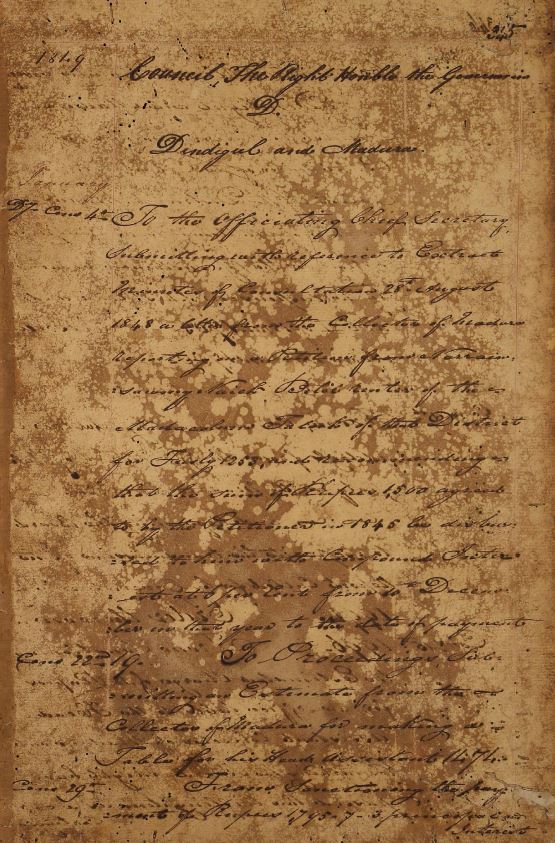 215
1849
Council, The Right Honble the Governor in
D.
Dindigul and Madura.
January
Cons 4th To the Officiating Chief Secretary,
Submitting with reference to Extract
Minutes of Consultation 28th August
1848 a letter from the Collector of Madura
reporting on a Petition from Narrain
sawmy Naick renter of the
Talook of that District
for Fusly and recommending
that the sum of Rupees 1,500 agreed
to by the Petitioner in 1845 be disbur
sed to him with Compound Inter
ests at 6 per Cent from 10th Decem
ber in that year to the date of payment
Cons 22nd 19. To Proceedings, Sub
mitting an Estimate from the
Collector of Madura for making a
Table for his Head Assistant
Cons 29th From Sanctioning the pay
ment of Rupees 1,795-7-3, principal and
Interest